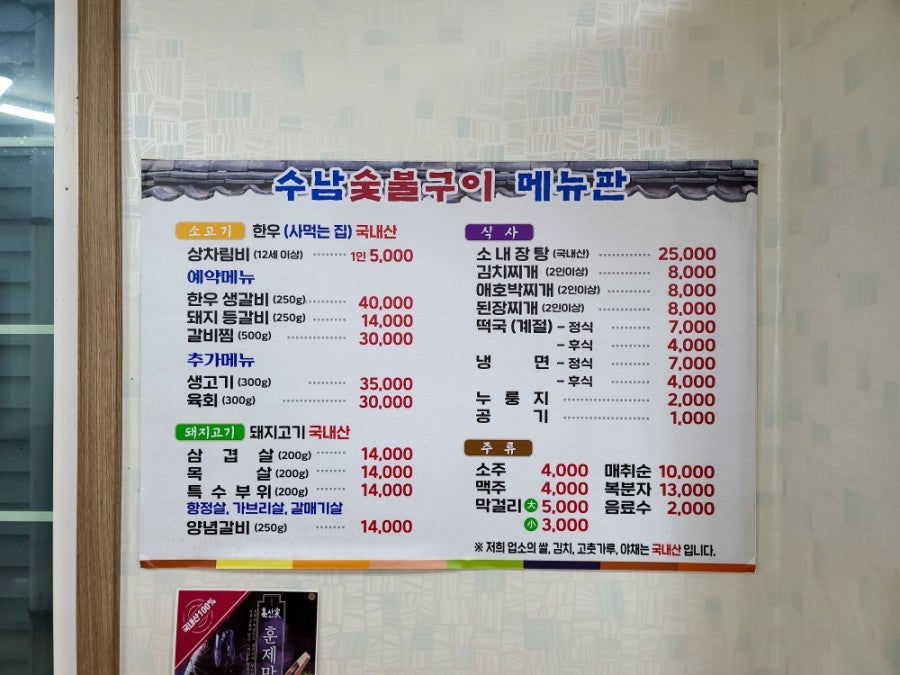 수남숯불구이 메뉴판
소고기 한우 (사먹는 집) 국내산
상차림비 (12세 이상) 1인 5,000
예약메뉴
한우 생갈비 (250g) 40,000
돼지 등갈비 (250g) 14,000
갈비찜 (500g) 30,000
추가메뉴
생고기 (300g) 35,000
육회 (300g) 30,000
돼지고기 돼지고기 국내산
삼겹살 (200g) 14,000
목살 (200g) 14,000
특수부위 (200g) 14,000
항정살, 가브리살, 갈매기살
양념갈비 (250g) 14,000
식사
소내장탕 (국내산) 25,000
김치찌개 (2인이상) 8,000
애호박찌개 (2인이상) 8,000
된장찌개 (2인이상) 8,000
떡국 (계절) - 정식 7,000
- 후식 4,000
냉면 - 정식 7,000
- 후식 4,000
누룽지 2,000
공기 1,000
주류
소주 4,000 매취순 10,000
맥주 4,000 복분자 13,000
막걸리 大 5,000 음료수 2,000
小 3,000
※ 저희 업소의 쌀, 김치, 고춧가루, 야채는 국내산 입니다.
국내산100%
훈제막